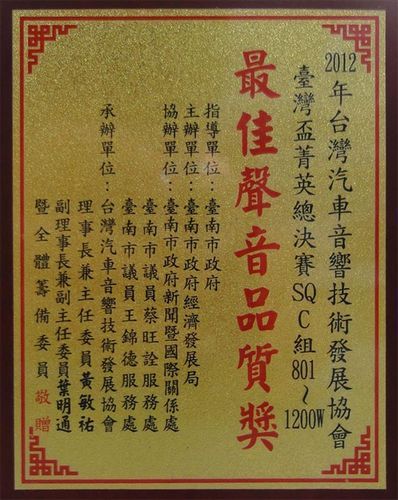 2012年台灣汽車音響技術發展協會
臺灣盃菁英總決賽SQ C組801~1200W
最佳聲音品質獎
指導單位：臺南市政府
主辦單位：臺南市政府經濟發展局
協辦單位：臺南市政府新聞暨國際關係處
臺南市議員蔡旺詮服務處
臺南市議員王錦德服務處
承辦單位：台灣汽車音響技術發展協會
理事長兼主任委員黃敏祐
副理事長兼副主任委員葉明通
暨全體籌備委員 敬贈